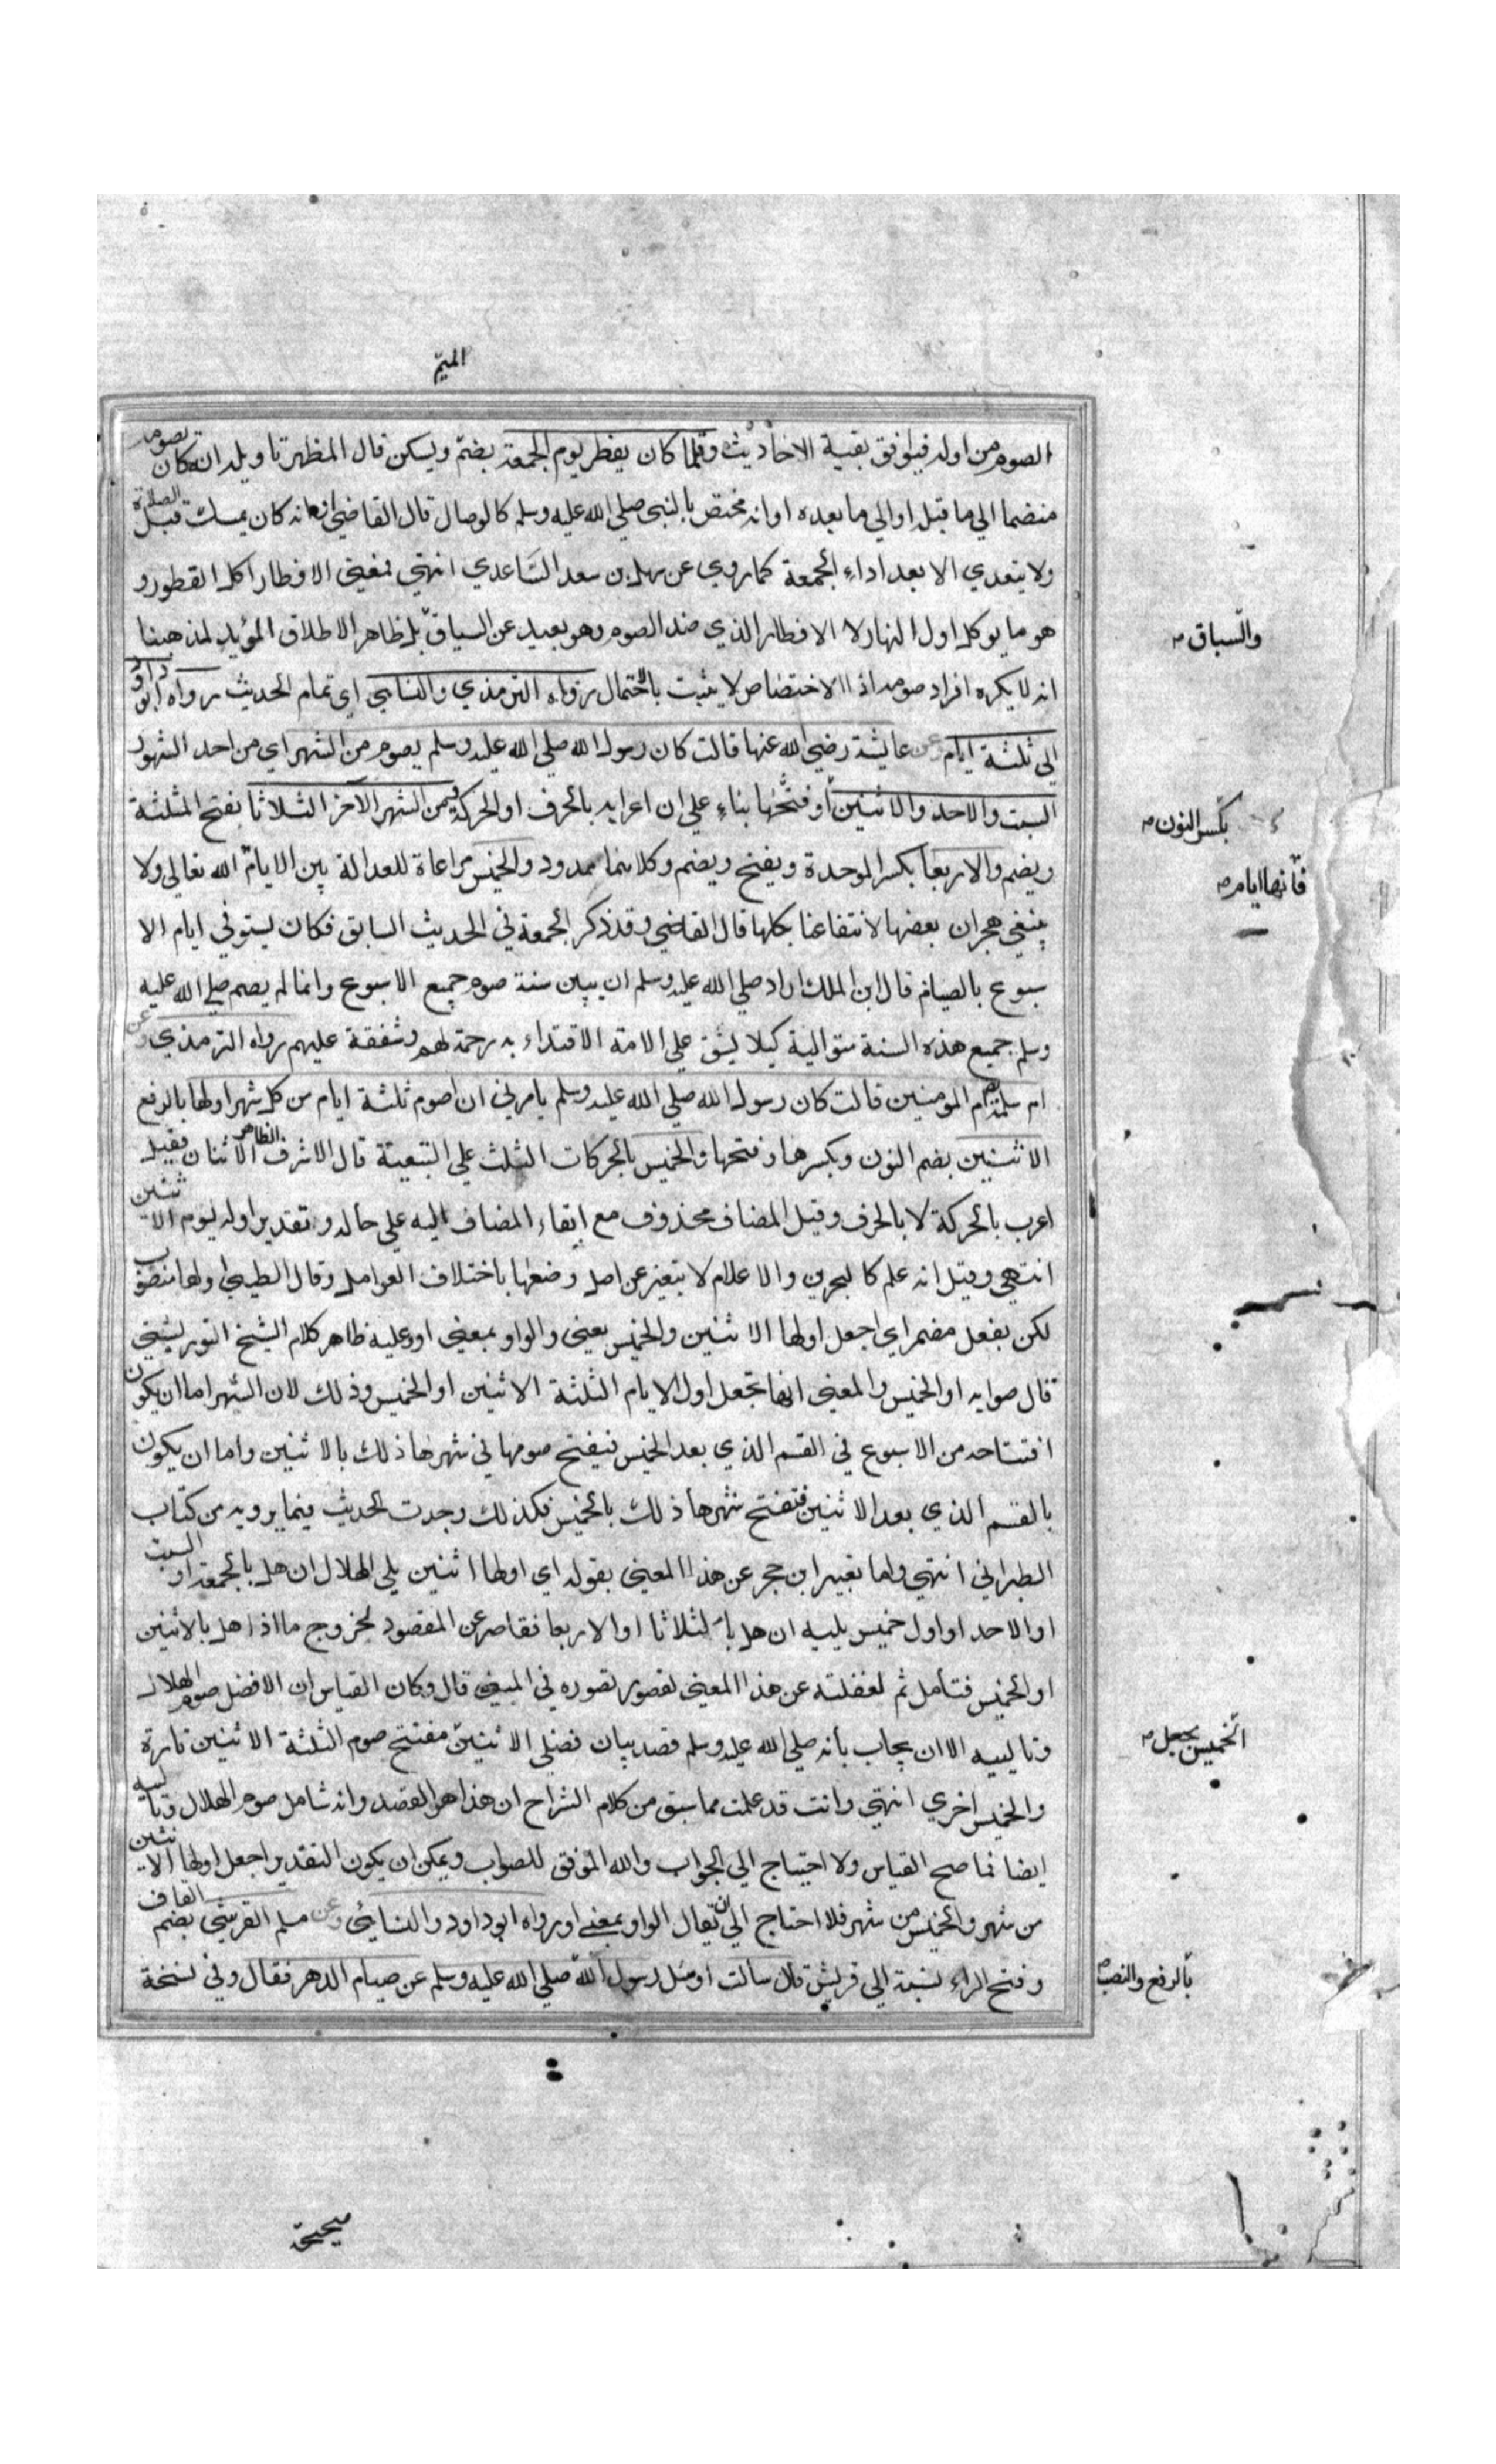 الميم
الصوم من اوله فيوافق بقية الاحاديث وقلما كان يفطر يوم الجمعة بضم ويسكن قال المظهر تاويله انه كان يصوم
منضما الي ما قبله او الي ما بعده او انه مختص بالنبي صلي الله عليه وسلم كالوصال قال القاضي او انه كان يمسك قبل الصلاة
ولا يتعدي الا بعد اداء الجمعة كما روي عن سهل بن سعد الساعدي انتهي فمعني الافطار اكل الفطور و
هو ما يوكل اول النهار لا الافطار الذي ضد الصوم وهو بعيد عن السياق بل ظاهر الاطلاق المؤيد لمذهبنا
والسباق
انه لا يكره افراد صومه اذ الاختصاص لا يثبت بالاحتمال رواه الترمذي والنسايي اي تمام الحديث رواه ابو داود
الي ثلثة ايام عن عايشة رضي الله عنها قالت كان رسول الله صلي الله عليه وسلم يصوم من الشهر اي من احد الشهور
السبت والاحد والاثنين او فتحها بناء علي ان اعرابه بالحرف او الحركة ومن الشهر الاخر الثلاثا بفتح المثلثة
بكسر النون
ويضم والاربعا بكسر الموحدة ويفتح ويضم وكلاهما ممدود والخميس مراعاة للعدالة بين الايام الله تعالي ولا
فانها ايام
ينبغي هجران بعضها لانتفاعنا بكلها قال القاضي وقد ذكر الجمعة في الحديث السابق فكان يستوفي ايام الا
سبوع بالصيام قال ابن الملك اراد صلي الله عليه وسلم ان يبين سنة صوم جميع الاسبوع وانما لم يصم صلي الله عليه
وسلم جميع هذه السنة متوالية كيلا يشق علي الامة الاقتداء به رحمة لهم وشفقة عليهم رواه الترمذي وعن
ام سلمة ام المومنين قالت كان رسول الله صلي الله عليه وسلم يامرني ان اصوم ثلثة ايام من كل شهر اولها بالرفع
الاثنين بضم النون وبكسرها وفتحها والخميس بالحركات الثلث علي التبعية قال الاشرف الظاهر الاثنان فقيل
اعرب بالحركة لا بالحرف وقيل المضاف محذوف مع ابقاء المضاف اليه علي حاله وتقديره اوله يوم الاثنين
انتهي وقيل انه علم كالبحرين والاعلام لا يتغير عن اصل وضعها باختلاف العوامل وقال الطيبي اولها منصوب
لكن بفعل مضمر اي اجعل اولها الاثنين والخميس يعني والواو بمعني او وعليه ظاهر كلام الشيخ التوربشتي
قال صوابه او الخميس والمعني انها تجعل اول الايام الثلثة الاثنين او الخميس وذلك لان الشهر اما ان يكون
افتتاحه من الاسبوع في القسم الذي بعد الخميس فيفتح صومها في شهرها ذلك بالاثنين واما ان يكون
بالقسم الذي بعد الاثنين فتفتح شهرها ذلك بالخميس فكذلك وجدت الحديث فيما يرويه من كتاب
الطبراني انتهي واما تعبير ابن حجر عن هذا المعني بقوله اي اولها اثنين يلي الهلال ان هل بالجمعة او السبت
او الاحد او اول خميس يليه ان هل بالثلاثا او الاربعا فقاصر عن المقصود لخروج ما اذا هل بالاثنين
او الخميس فتامل ثم لغفلته عن هذا المعني لقصور تصوره في المبني قال وكان القياس ان الافضل صوم الهلال
وتالييه الا ان يجاب بانه صلي الله عليه وسلم قصد بيان فضلي الاثنين مفتتح صوم الثلثة الاثنين تارة
الخميس بجعل
والخميس اخري انتهي وانت قد علمت مما سبق من كلام الشراح ان هذا هو القصد وانه شامل صوم الهلال وتالييه
ايضا فما صح القياس ولا احتياج الي الجواب والله الموفق للصواب ويمكن ان يكون التقدير اجعل اولها الاثنين
من شهر والخميس من شهر فلا احتاج الي ان يقال الواو بمعني او رواه ابو داود والنسايي وعن مسلم القرشي بضم القاف
وفتح الراء نسبة الي قريش قال سالت او سئل رسول الله صلي الله عليه وسلم عن صيام الدهر فقال وفي نسخة
بالرفع والنصب